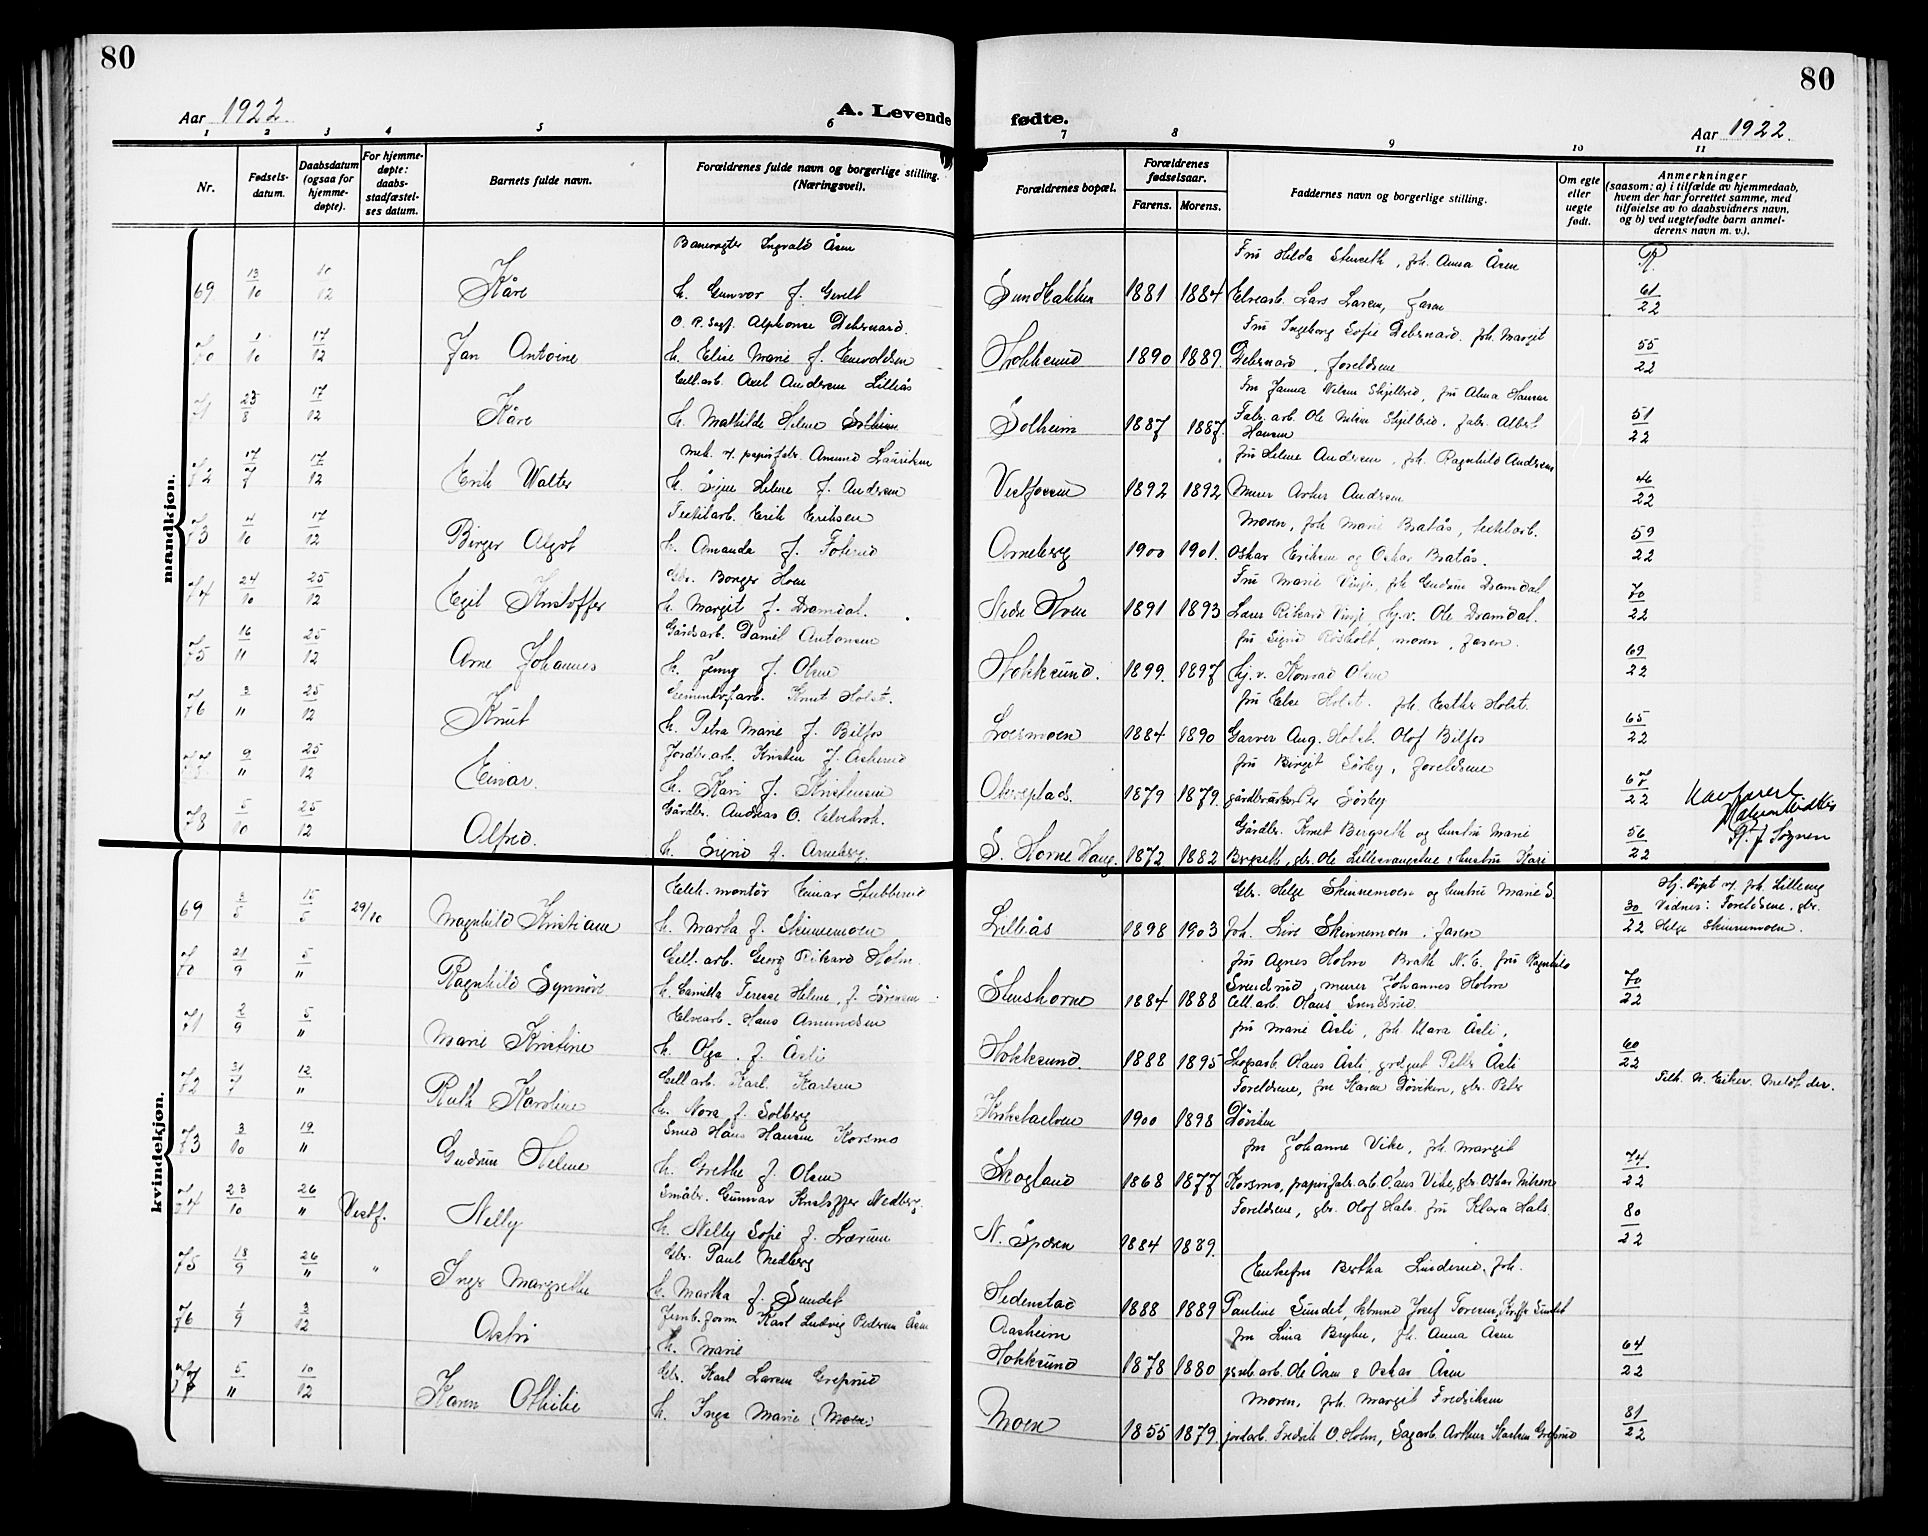 80
80
Aar 1922.
A. Levende fødte.
Aar 1922.
1 2 3 4 5 6 7 8 9 10 11
Nr.
Fødsels-
datum.
Daabsdatum
(ogsaa for
hjemme-
døpte).
For hjemme-
døpte:
daabs-
stadfæstel-
ses datum.
Barnets fulde navn.
Forældrenes fulde navn og borgerlige stilling.
(Næringsvei).
Forældrenes bopæl.
Forældrenes
fødselsaar.
Farens. Morens.
Faddernes navn og borgerlige stilling.
Om egte
eller
uegte
født.
Anmerkninger
(saasom: a) i tilfælde av hjemmedaab,
hvem der har forrettet samme, med
tilføielse av to daabsvidners navn,
og b) ved uegtefødte barn anmel-
derens navn m. v.).
mandkjøn.
Banevogter Ingvald Åsen Fru Hilda Stenseth, frk. Anna Åsen
69 13/10 10/12 Kåre h. Gunvor f. Sundbakken 1881 1884 Elvearb. Lars Larsen, faren 61/22
Alphonse Debernard. Fru Ingeborg Sofie Debernard. frk. Margit
70 1/10 17/12 Jan Antoine h. Elise Marie f. Enevoldsen Hokksund 1890 1889. Debernard, foreldrene 55/22
Cell.arb. Axel Andersen Lilleås Fru Janna Nilsen Skjelbred, fru Alma Hansen
71 25/8 17/12 Kåre h. Mathilde Helene Solheim 1887 1887. Fabr. arb. Ole Nilsen Skjelbred, fabr. Albert Hansen 51/22
Amund Lauriksen fru Helene Andersen, frk. Ragnhild Andersen
72 17/7 17/12 Erik Walter h. Signe Helene f. Andersen Vestfossen 1892 1892 Murer Arthur Andersen 46/22
Textilarb. Erik Eriksen Moren, frk Marie Bratås, textilarb.
73 4/10 17/12 Birger Algot h. Amanda f. Foterud Arneberg 1900 1901. Oskar Eriksen og Oskar Bratås. 59/22
Gbr. Borger Hoen Fru Marie Vinje, frk Gudrun Dramdal,
74 24/10 25/12 Egil Kristoffer h. Margit f. Dramdal. Nedre Hoen 1891 1893 Lærer Rikard Vinje, Ole Dramdal. 70/22
Gårdsarb. Daniel Antonsen fru Signe Røsholt, moren, faren.
75 16/11 25/12 Arne Johannes h. Jenny f. Olsen Hokksund. 1899. 1897 Konrad Olsen 69/22
Knut Holst. fru Else Holst. frk. Esther Holst.
76 2/" 25/12 Knut h. Petra Marie f. Bilfos Loesmoen 1884 1890 Garver Aug. Holst. Olof Bilfos 65/22
Jordbr.arb. Kristen J. Askerud fru Birgit Sørby, foreldrene
77 9/" 25/12 Einar. h. Kari f. Kristensen 1879 1879. Sørby 22
Gårdbr. Andreas O. Gårdbr. Knut Bergseth og hustru Marie
78 5/10 25/12 Alfred. h. Sigrid f. Arneberg. S. Horne Haug. 1872 1882 Bergseth, gbr. Ole hustru Kari 56/22
kvindekjøn.
Elek. montør Einar Stubberud Gbr. Helge Skinnemoen og hustru Marie S. Hj. døpt v. frk. Lilleng
69 2/5 15/5 29/10 Magnhild Kristiane h. Marta f. Skinnemoen Lilleås 1898 1903 frk. Live Skinnemoen, faren 30/22 Vidner: Foreldrene, gbr. Helge Skinnemoen.
Cell. arb. Georg Rikard Holm. fru Agnes Holm fru Ragnhild
70 21/9 5/" Ragnhild Synnøve h. Camilla Terese Helene, f. Sørensen Stenshorne 1884 1888 Svendsrud, murer Johannes Holm Cell. arb. Olaus Svendsrud. 70/22
Elvearb. Hans Amundsen fru Marie Åsli, frk. Klara Åsli,
71 2/9 5/" Marie Kristine h. Olga. f. Åsli Hokksund. 1888 1895 Skogsarb. Olaus Åsli, Petter Åsli 60/22
Cell arb. Karl Karlsen Foreldrene, fru Karen Døviken, gbr. Peter
72 31/7 12/" Ruth Karoline h. Nora f. Solberg 1900 1898 Døviken Tilh. N. Eiker. Meldt der.
Smed Hans Hansen Korsmo fru Johanne Vike, frk. Margit
73 3/10 19/" Gudrun Helene h. Grethe f. Olsen Skogland 1868 1877 Korsmo, papirfabr. arb. Olaus Vike, gbr. Oskar Nilsen 74/22
Småbr. Gunnar Kristoffer Nedberg. Foreldrene, gbr. Olof Hals. fru Klara Hals.
74 23/10 26/" Vestf. Nelly h. Nelly Sofie f. Lærum N. Sporsen 1884 1889. 80/22
Gbr. Paul Nedberg Enkefru Bertha Linderud, frk.
75 18/9 26/" " Inger Margrethe h. Martha f. Sundet Hedenstad 1888 1889 Pauline Sundet, Josef Toresen, Sundet
Jernb. form. Karl Ludvig Pedersen Åsen fru Lina Bryhn, frk. Anna Åsen
76 1/9 3/12 Astri h. Marie Aasheim Hokksund 1878 1880 Ole Åsen & Oskar Åsen 64/22
Gbr. Karl Larsen Grefsrud Moren, frk. Margit Fredriksen
77 5/" 10/12 Karin Othilie h. Inga Marie (Moen) Moen 1855 1879. jordarb. Fredrik O. Holm, Sagarb. Arthur Karlsen Grefsrud 81/22